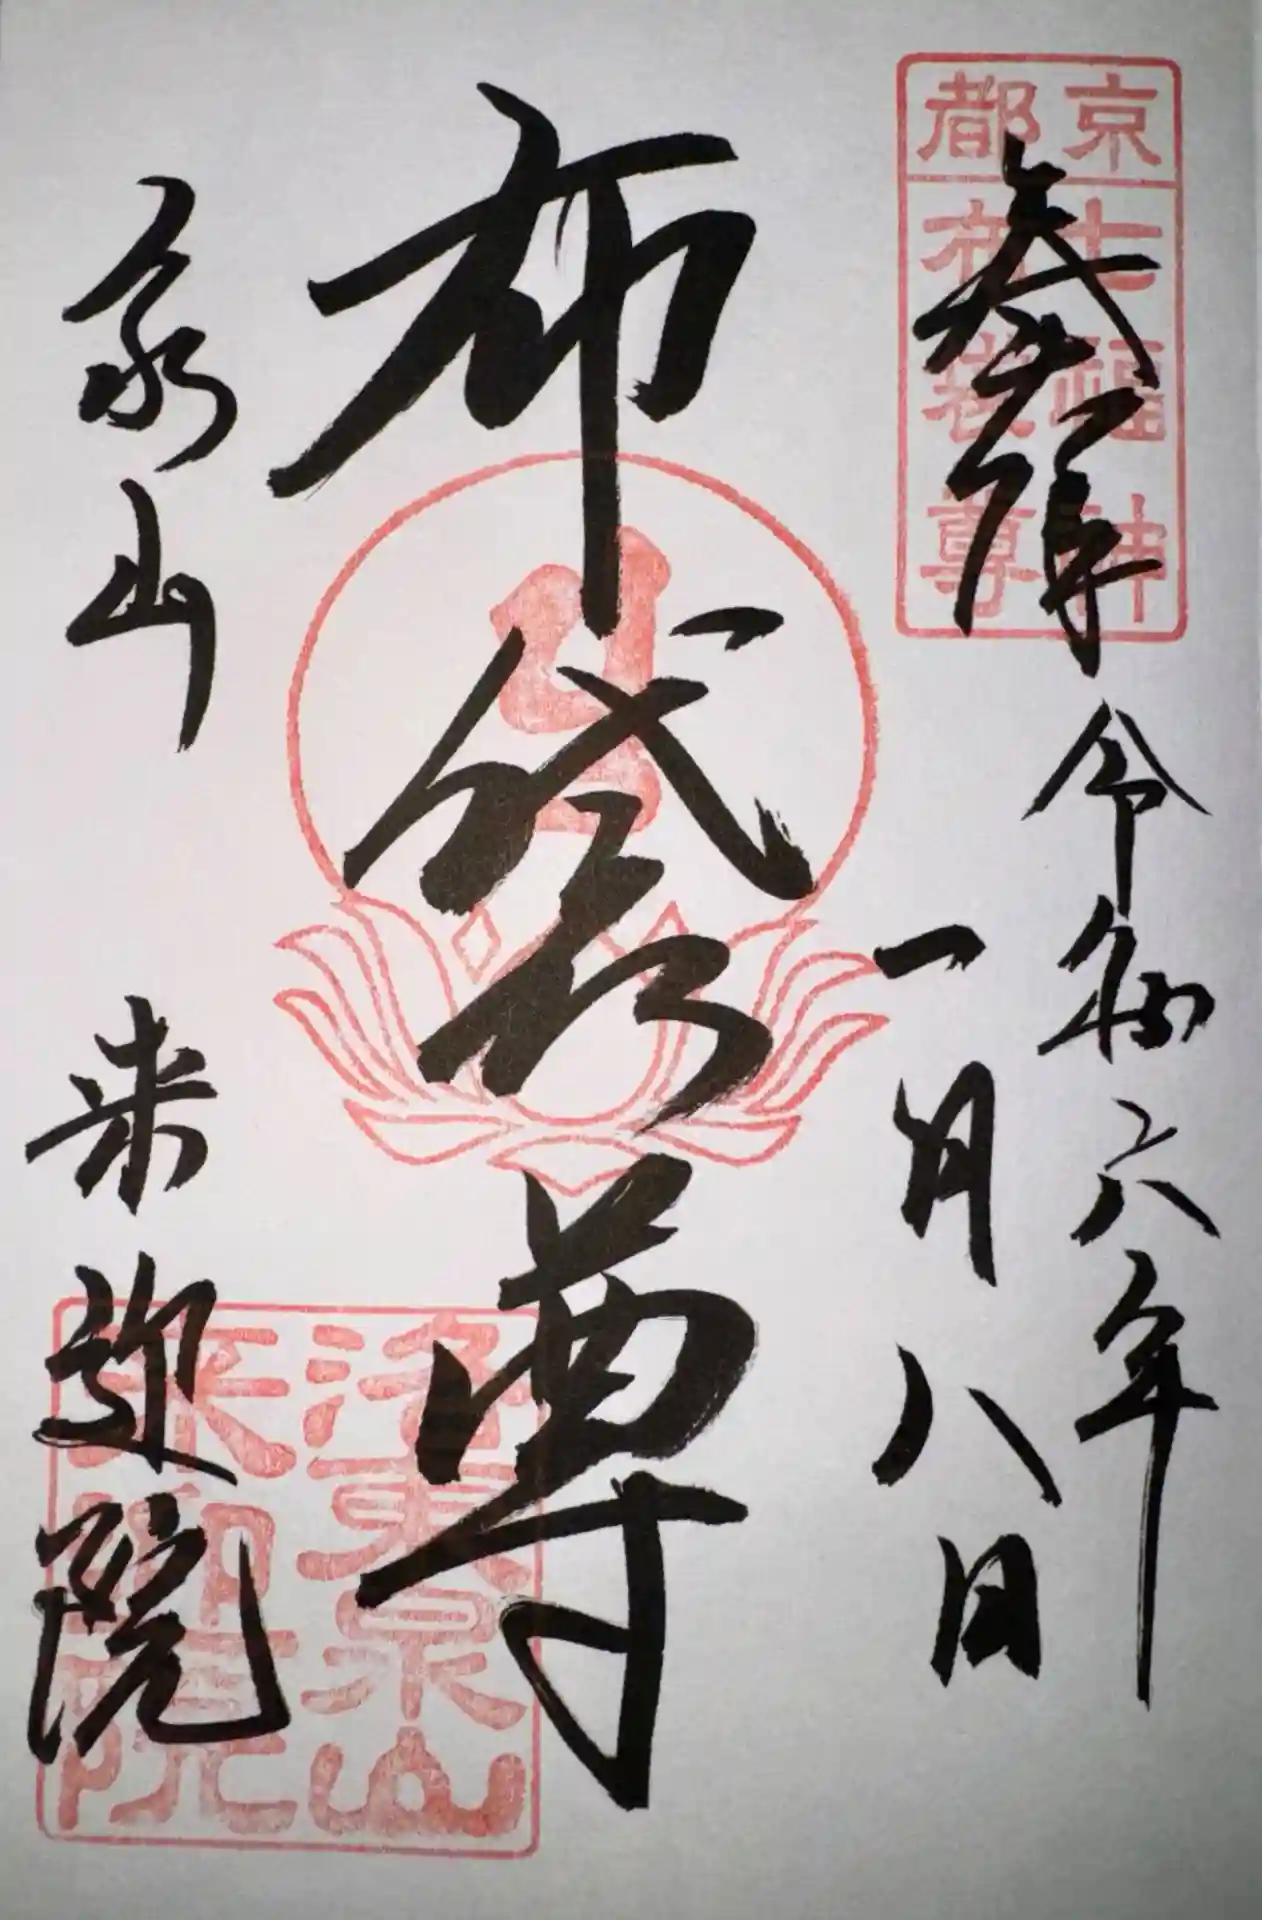 京都
七福神
布袋尊
奉拝
令和六年
一月八日
布袋尊
泉山
来迎院
洛東泉山
来迎院